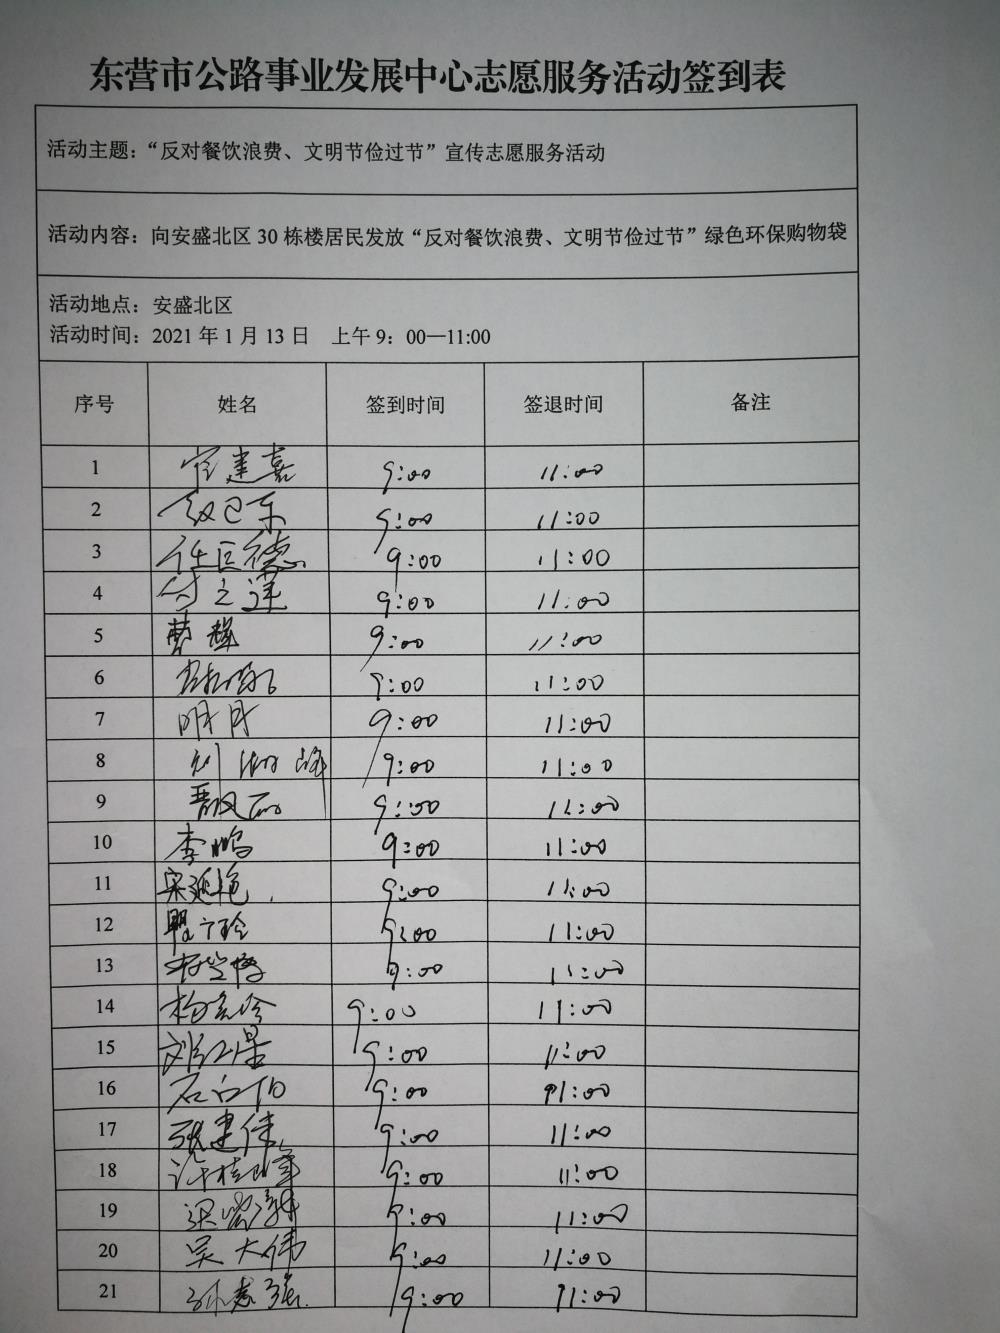 东营市公路事业发展中心志愿服务活动签到表
活动主题：“反对餐饮浪费、文明节俭过节”宣传志愿服务活动
活动内容：向安盛北区 30 栋楼居民发放“反对餐饮浪费、文明节俭过节”绿色环保购物袋
活动地点：安盛北区
活动时间：2021 年 1 月 13 日 上午 9：00—11:00
序号 姓名 签到时间 签退时间 备注
1 9:00 11:00
2 9:00 11:00
3 任巨德 9:00 11:00
4 9:00 11:00
5 曹辉 9:00 11:00
6 9:00 11:00
7 明月 9:00 11:00
8 9:00 11:00
9 9:00 11:00
10 李鹏 9:00 11:00
11 宋延艳 9:00 11:00
12 9:00 11:00
13 9:00 11:00
14 9:00 11:00
15 9:00 11:00
16 9:00 11:00
17 张建伟 9:00 11:00
18 许桂峰 9:00 11:00
19 9:00 11:00
20 吴大伟 9:00 11:00
21 孙志强 9:00 11:00